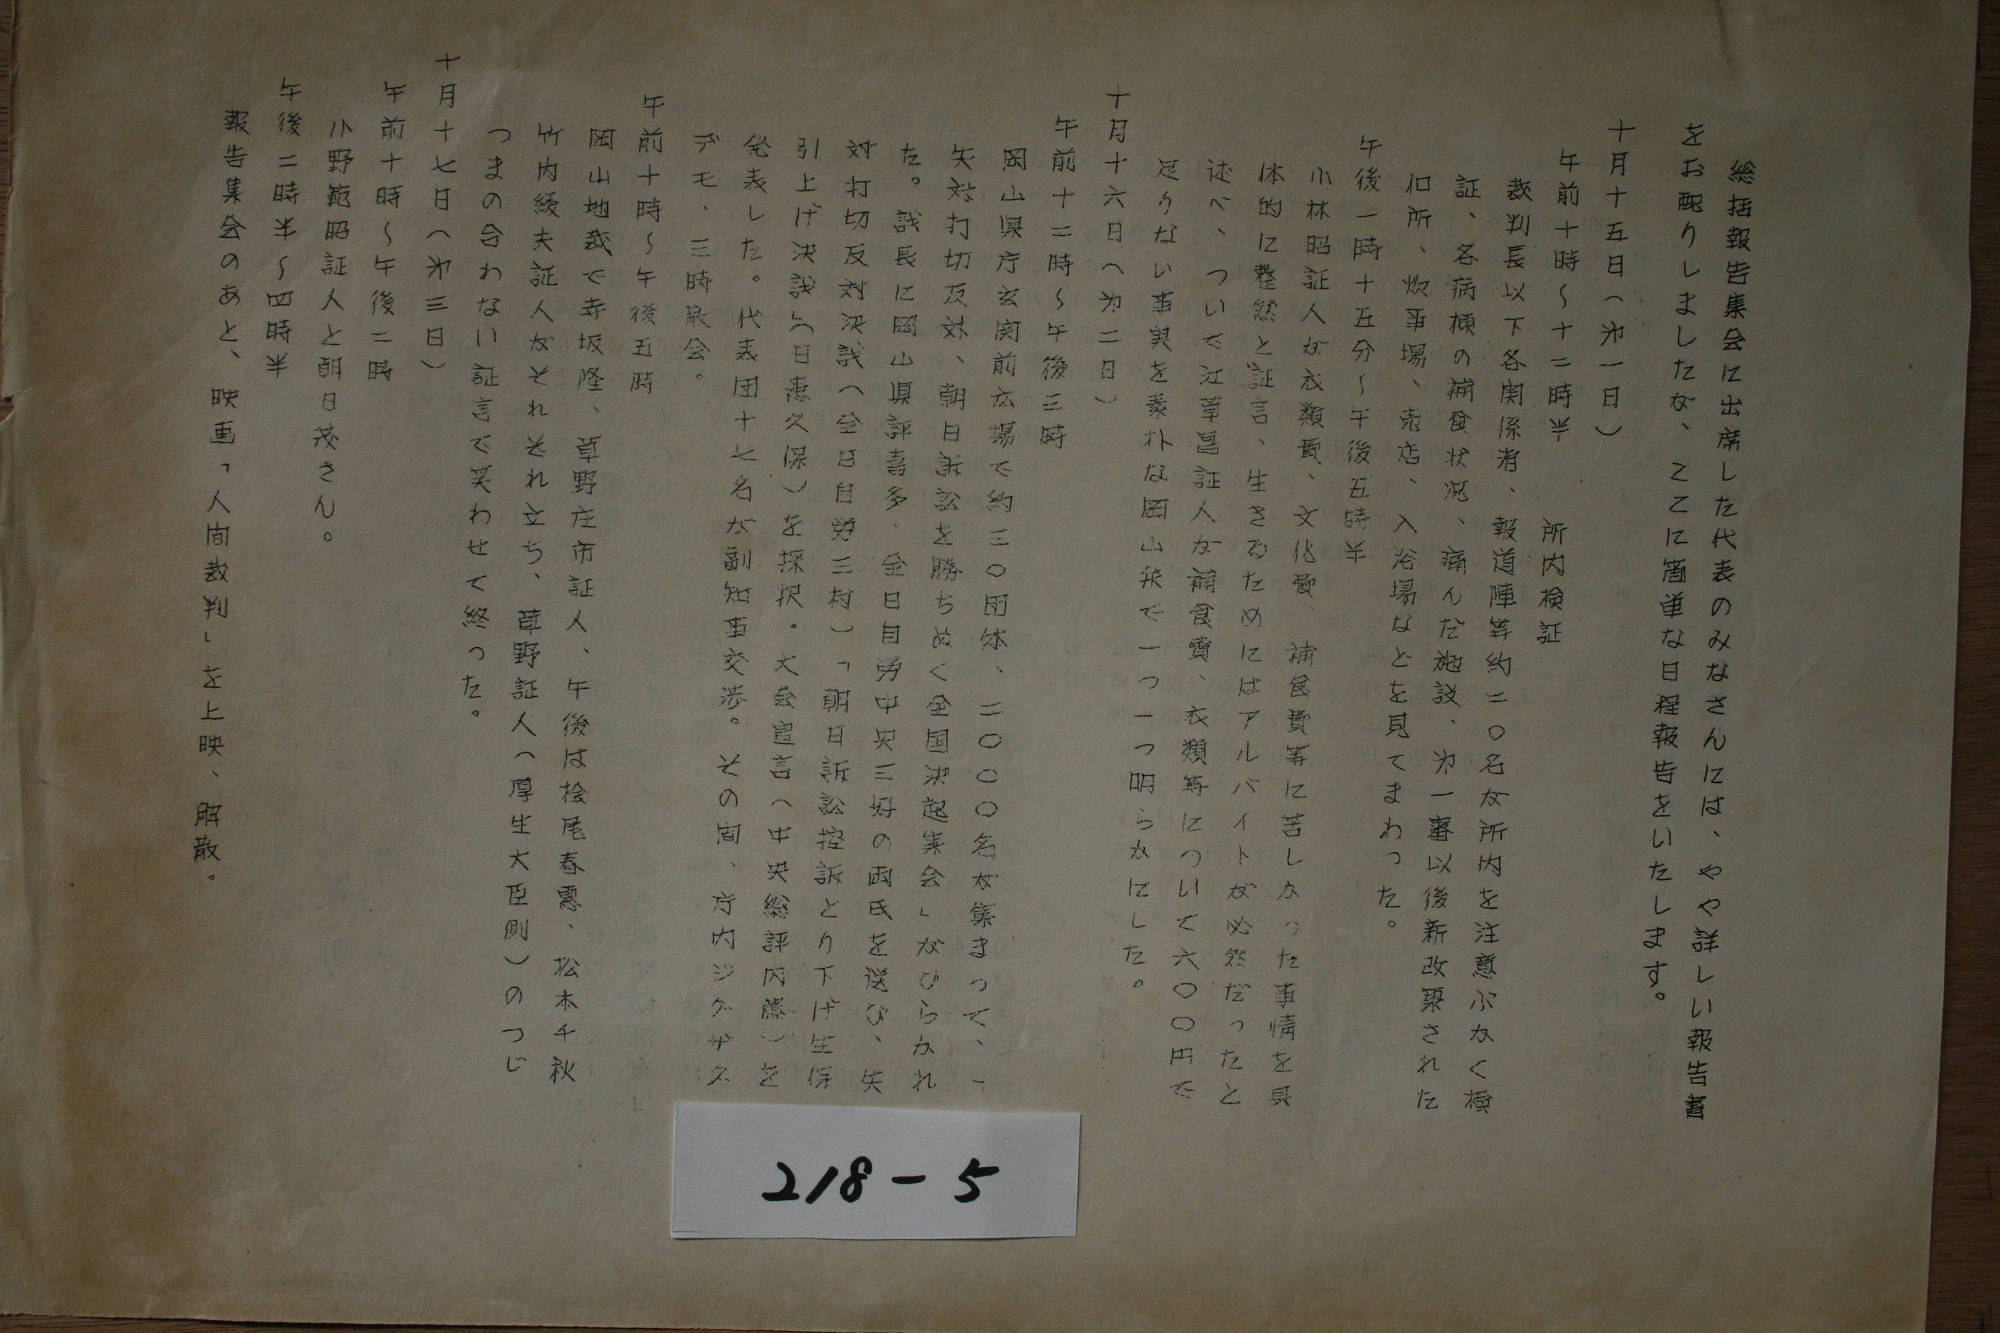 総括報告集会に出席した代表のみなさんには、やや詳しい報告書
をお配りしましたが、ここに簡単な日程報告をいたします。
十月十五日（第一日）
午前十時～十二時半　所内検証
裁判長以下各関係者、報道陣等約二〇名が所内を注意ぶかく検
証、各病棟の補食状況、痛んだ施設、第一審以後新改築された
個所、炊事場、売店、入浴場などを見てまわった。
午後一時十五分～午後五時半
小林昭証人が衣類費、文化費、補食費等に苦しかった事情を具
体的に整然と証言、生きるためにはアルバイトが必然だったと
述べ、ついで江草昌証人が補食費、衣類等について六〇〇円で
足りない事実を素朴な岡山弁で一つ一つ明らかにした。
十月十六日（第二日）
午前十二時～午後三時
岡山県庁玄関前広場で約三〇団体、二〇〇〇名が集まって、「
失対打切反対、朝日訴訟を勝ちぬく全国決起集会」がひらかれ
た。議長に岡山県評喜多、全日自労中央三好の両氏を選び、失
対打切反対決議（全日自労三村）「朝日訴訟控訴とり下げ生保
引上げ決議」（日患久保）を採択。大会宣言（中央総評内藤）を
発表した。代表団十七名が副知事交渉。その間、庁内ジグザグ
デモ、三時散会。
午前十時～午後五時
岡山地裁で寺坂隆、草野庄市証人、午後は桧尾春恵、松本千秋
竹内綾夫証人がそれぞれ立ち、草野証人（厚生大臣側）のつじ
つまの合わない証言で笑わせて終った。
十月十七日（第三日）
午前十時～午後二時
小野範昭証人と朝日茂さん。
午後二時半～四時半
報告集会のあと、映画「人間裁判」を上映、解散。
218-5